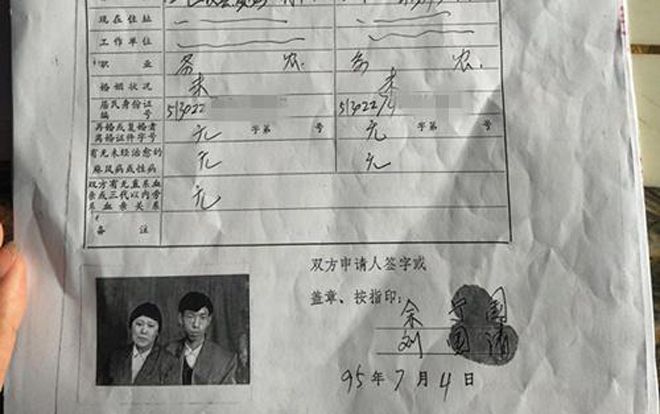 现在住址
工作单位
职业 务 农 务 农
婚姻状况 未 未
居民身份证编号 513022 513022
再婚或复婚者离婚证件字号 无 字第 号 无 字第 号
有无未经治愈的麻风病或性病 无 无
双方有无直系血亲或三代以内旁系血亲关系 无
备注
双方申请人签字或
盖章、按指印:
国
刘
95年7月4日